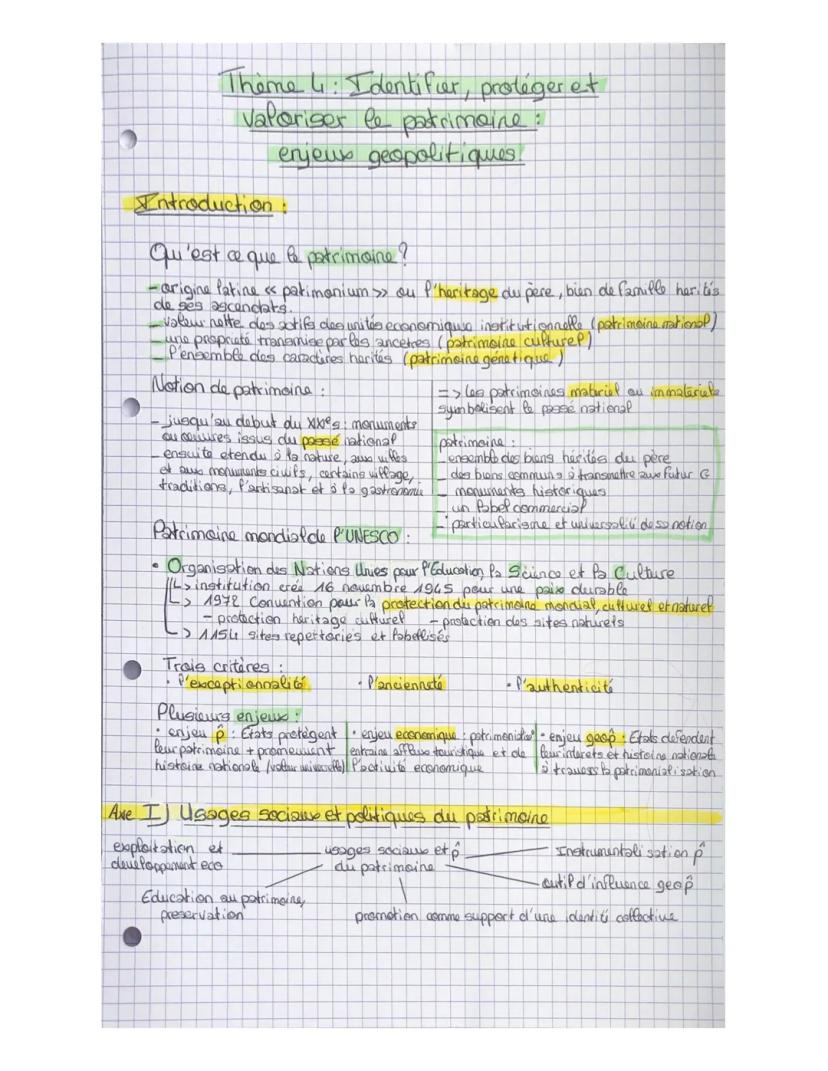 Thème 4 : Identifier, protéger et
valoriser le patrimoine :
enjeux geopolitiques.
Introduction :
Qu'est ce que le patrimoine ?
- origine latine << patimonium >> ou l'heritage du père, bien de famille herités
de ses ascendats.
- valeur nette des actifs des unités economique institutionnelle (patrimoine national)
- une propriété transmise par les ancetres (patrimoine culturel)
- l'ensemble des caractères herités (patrimoine génétique)
Notion de patrimoine :
- jusqu'au debut du XXe s : monuments
ou œuvres issus du passé national
- ensuite etendu à la nature, aux villes
et aux monuments civils, certains village,
traditions, l'artisanat et à la gastronomie
=> les patrimoines matériel ou immateriele
symbolisent le passé national
patrimoine :
- ensemble des biens hérités du père
- des biens communs à transmettre aux futur G
- monuments historiques
- un label commercial
- particularisme et universalité de sa notion
Patrimoine mondial de l'UNESCO :
• Organisation des Nations Unies pour l'Education, la Science et la Culture
↳ institution créé 16 novembre 1945 pour une paix durable
↳ 1972 Convention pour la protection du patrimoine mondial, culturel et naturel
- protection heritage culturel - protection des sites naturels
↳ 1154 sites repertoriés et labellisés
Trois critères :
• l'exceptionnalité • l'ancienneté • l'authenticité
Plusieurs enjeux :
• enjeu p̂ : Etats protègent
leur patrimoine + promeuvent
histoire nationale (valeur universelle)
• enjeu economique : patrimonial°
entraine afflux touristique et de
l'activité economique
• enjeu geop̂ : Etats defendent
leur interets et histoire nationale
à travers la patrimonialisation
Axe I) Usages sociaux et politiques du patrimoine
exploitation et
developpement eco
usages sociaux et p̂
du patrimoine
Instrumentalisation p̂
outil d'influence geop̂
Education au patrimoine,
preservation
promotion comme support d'une identité collective